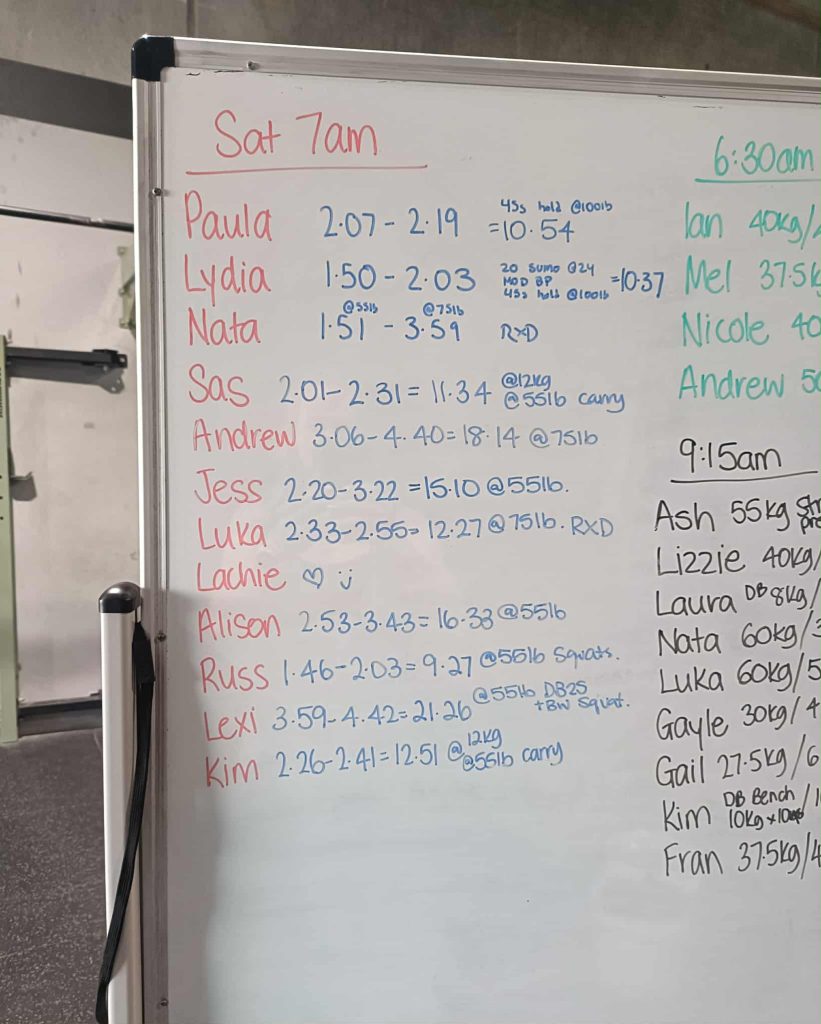 Sat 7am
Paula 2.07 - 2.19 = 10.54 45s hold @100lb
Lydia 1.50 - 2.03 20 Sumo @24 MOD BP 45s hold @100lb = 10.37
@55lb @75lb
Nata 1.51 - 3.59 RXD
Sas 2.01 - 2.31 = 11.34 @12kg @55lb carry
Andrew 3.06 - 4.40 = 18.14 @75lb
Jess 2.20 - 3.22 = 15.10 @55lb.
Luka 2.33 - 2.55 = 12.27 @75lb. RXD
Lachie ♡ :)
Alison 2.53 - 3.43 = 16.33 @55lb
Russ 1.46 - 2.03 = 9.27 @55lb Squats.
Lexi 3.59 - 4.42 = 21.26 @55lb DB25 + BW Squat.
Kim 2.26 - 2.41 = 12.51 @12kg @55lb carry
6:30am
Ian 40kg/
Mel 37.5k
Nicole 40
Andrew 50
9:15am
Ash 55kg
Lizzie 40kg/
Laura DB 8kg/
Nata 60kg/3
Luka 60kg/5
Gayle 30kg/4
Gail 27.5kg/6
Kim DB Bench 10kg x 10 /1
Fran 37.5kg/4